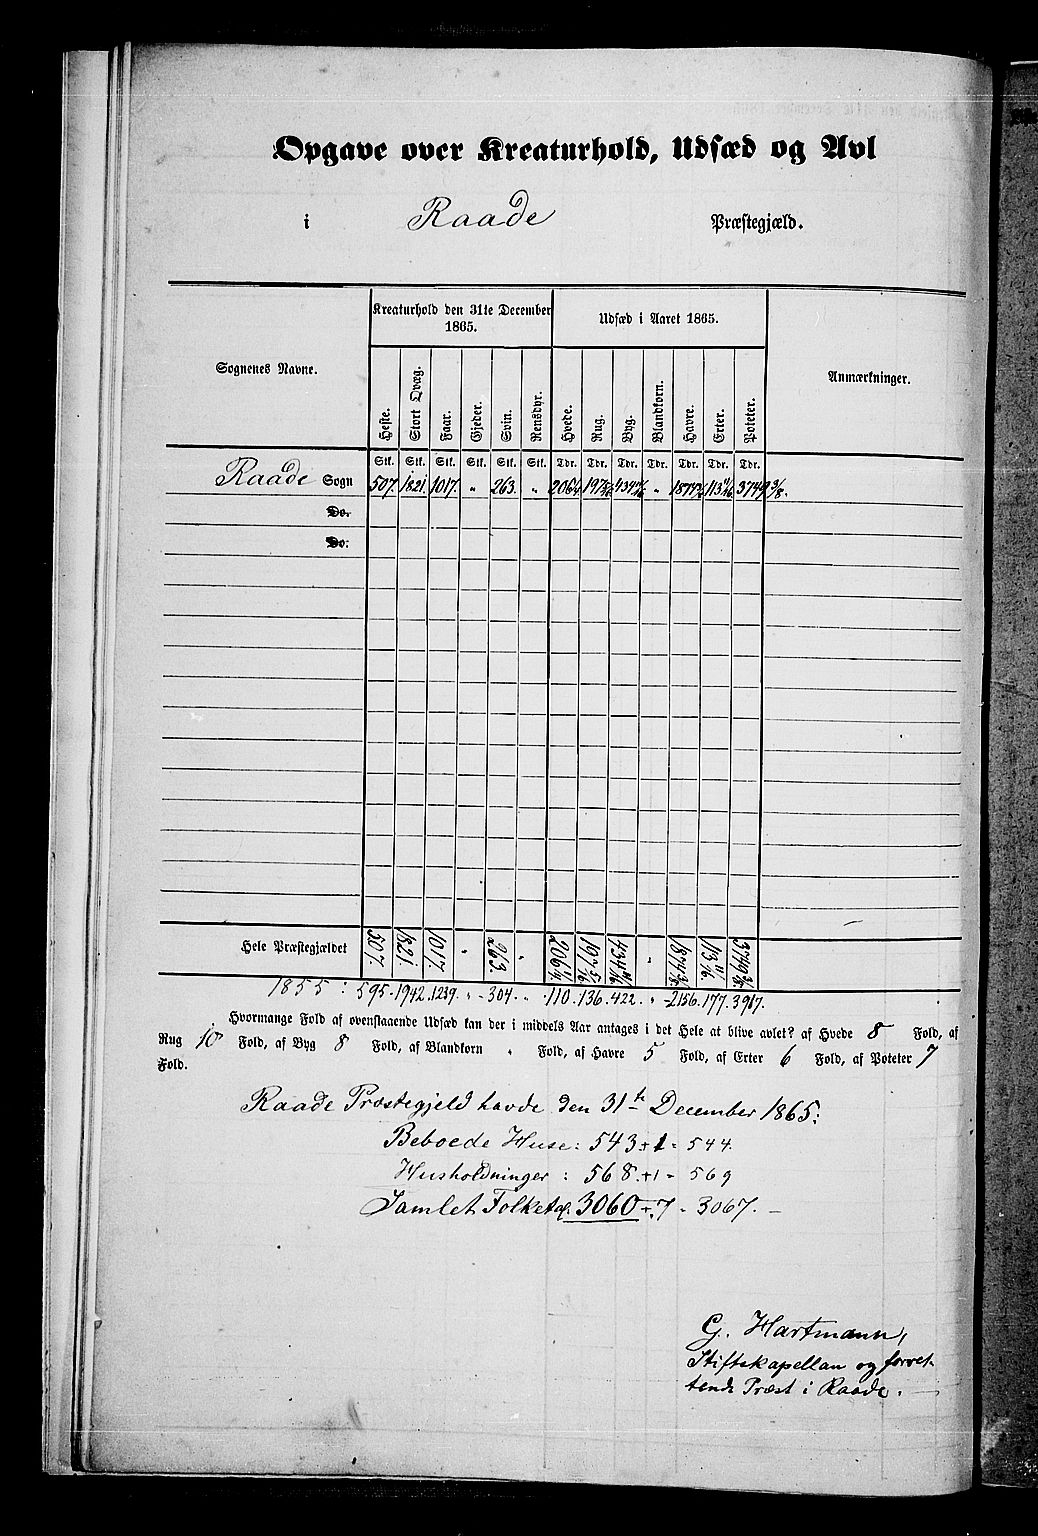 Opgave over Kreaturhold, Udsæd og Avl
i Raade Præstegjæld.
Sognenes Navne.
Kreaturhold den 31te December 1865.
Udsæd i Aaret 1865.
Anmærkninger.
Heste. Stort Qvæg. Faar. Gjeder. Svin. Rensdyr. Hvede. Rug. Byg. Blandkorn. Havre. Erter. Poteter.
Stk. Stk. Stk. Stk. Stk. Stk. Tdr. Tdr. Tdr. Tdr. Tdr. Tdr. Tdr.
Raade Sogn 507. 1821. 1017. „ 263. „ 113 11/16. 3749 3/8.
Do.
Do.
Hele Præstegjældet 507. 1821. 1017. „ 263. „ 197 5/16 „ 113 11/16. 3749 3/8
1855: 595. 1942. 1239. „ 304. „ 110. 136. 422. „ 2156. 177. 3917.
Hvormange Fold af ovenstaaende Udsæd kan der i middels Aar antages i det Hele at blive avlet? af Hvede 8 Fold, af
Rug 10 Fold, af Byg 8 Fold, af Blandkorn „ Fold, af Havre 5 Fold, af Erter 6 Fold, af Poteter 7
Fold.
Raade Præstegjeld havde den 31te December 1865:
Beboede Huse: 543 + 1 = 544.
Husholdninger: 568. + 1 = 569
Samlet Folketal. 3060 + 7 = 3067.
G. Hartmann,
Stiftskapellan og forret-
tende Præst i Raade.